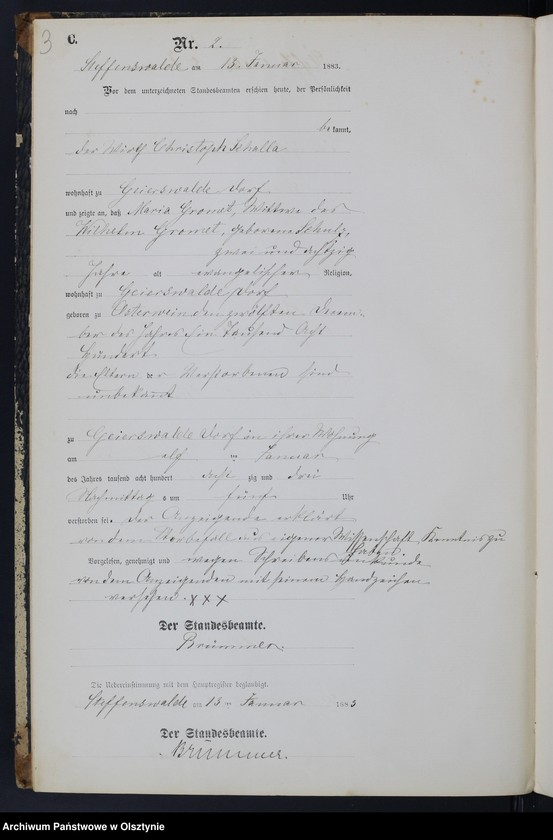 3
C.
Nr. 2.
Steffenswalde am 13. Januar 1883.
Vor dem unterzeichneten Standesbeamten erschien heute, der Persönlichkeit
nach
bekannt,
der Wirth Christoph Schalla
wohnhaft zu Geierswalde Dorf
und zeigte an, daß Maria Gromet, Wittwe des
Wilhelm Gromet, geborene Schulz,
zwei und achtzig
Jahre alt evangelischer Religion,
wohnhaft zu Geierswalde Dorf
geboren zu Osterwein den zwölften Decem-
ber des Jahres Ein Tausend Acht
Hundert
die Eltern der Verstorbenen sind
unbekannt
zu Geierswalde Dorf in ihrer Wohnung
am elf ten Januar
des Jahres tausend acht hundert acht zig und drei
Nachmittag s um fünf Uhr
verstorben sei. Der Anzeigende erklärt
von dem Sterbefall aus eigener Wissenschaft Kenntnis zu
haben.
Vorgelesen, genehmigt und wegen Schreibens Unkunde
von dem Anzeigenden mit seinem Handzeichen
versehen. x x x
Der Standesbeamte.
Brümmer.
Die Uebereinstimmung mit dem Hauptregister beglaubigt.
Steffenswalde am 13 ten Januar 1883
Der Standesbeamte.
Brümmer.
Archiwum Państwowe w Olsztynie